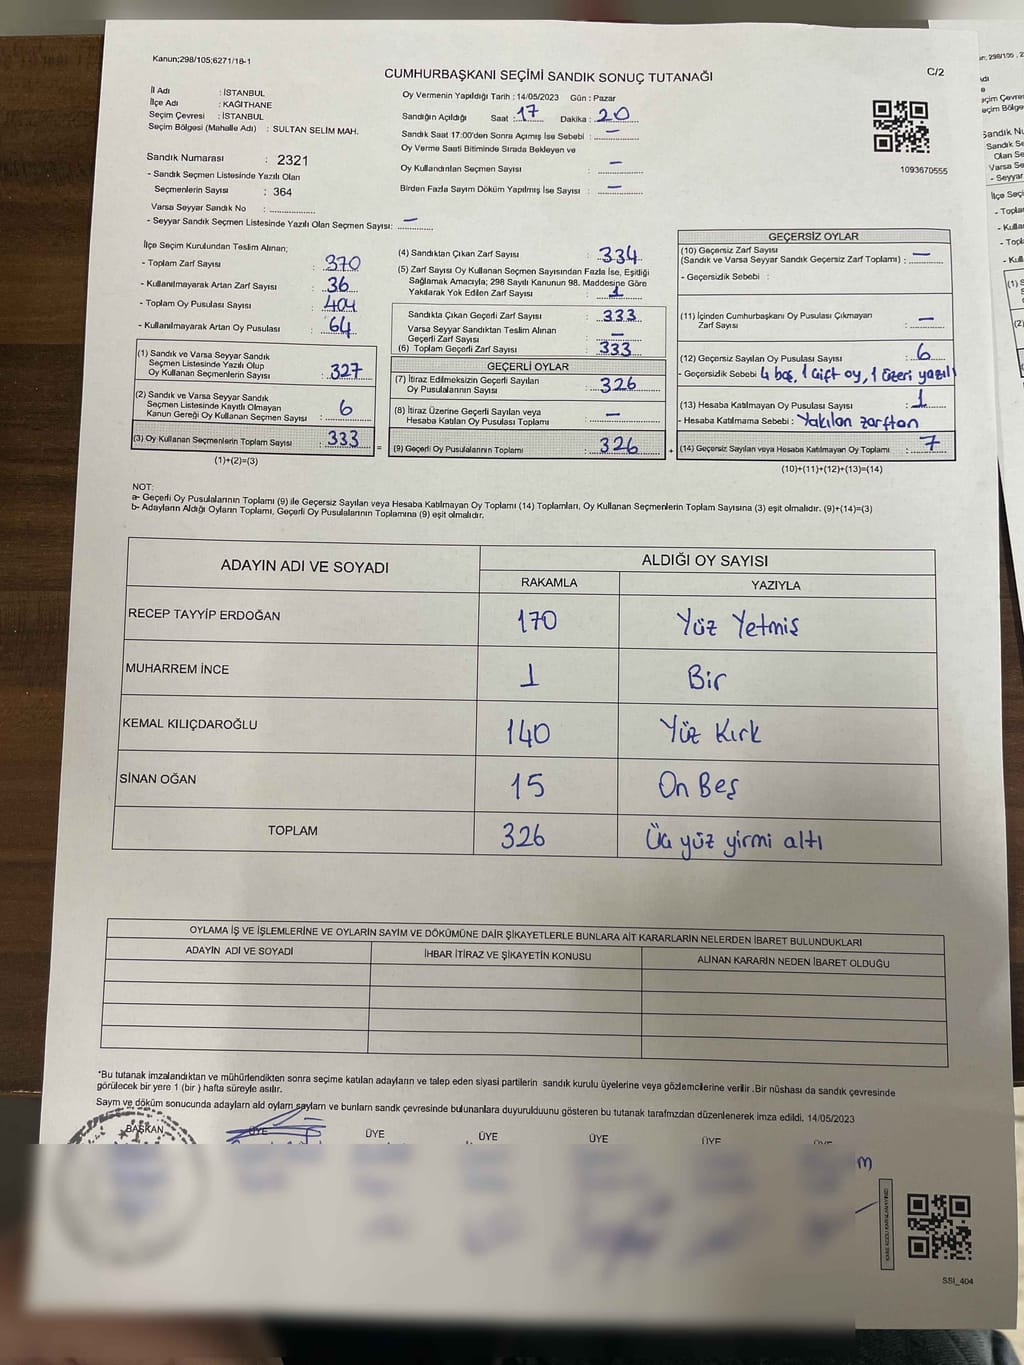 Kanun;298/105;6271/18-1
CUMHURBAŞKANI SEÇİMİ SANDIK SONUÇ TUTANAĞI
C/2
İl Adı : İSTANBUL
İlçe Adı : KAĞITHANE
Seçim Çevresi : İSTANBUL
Seçim Bölgesi (Mahalle Adı) : SULTAN SELİM MAH.
Sandık Numarası : 2321
- Sandık Seçmen Listesinde Yazılı Olan
Seçmenlerin Sayısı : 364
Varsa Seyyar Sandık No : ..............
- Seyyar Sandık Seçmen Listesinde Yazılı Olan Seçmen Sayısı: –
Oy Vermenin Yapıldığı Tarih : 14/05/2023 Gün : Pazar
Sandığın Açıldığı Saat : 17 Dakika : 20
Sandık Saat 17:00'den Sonra Açımış İse Sebebi : –
Oy Verme Saati Bitiminde Sırada Bekleyen ve
Oy Kullandırılan Seçmen Sayısı : –
Birden Fazla Sayım Döküm Yapılmış İse Sayısı : –
1093670555
İlçe Seçim Kurulundan Teslim Alınan;
- Toplam Zarf Sayısı : 370
- Kullanılmayarak Artan Zarf Sayısı : 36
- Toplam Oy Pusulası Sayısı : 404
- Kullanılmayarak Artan Oy Pusulası : 64
(1) Sandık ve Varsa Seyyar Sandık
Seçmen Listesinde Yazılı Olup
Oy Kullanan Seçmenlerin Sayısı : 327
(2) Sandık ve Varsa Seyyar Sandık
Seçmen Listesinde Kayıtlı Olmayan
Kanun Gereği Oy Kullanan Seçmen Sayısı : 6
(3) Oy Kullanan Seçmenlerin Toplam Sayısı : 333 =
(1)+(2)=(3)
(4) Sandıktan Çıkan Zarf Sayısı : 334
(5) Zarf Sayısı Oy Kullanan Seçmen Sayısından Fazla İse, Eşitliği
Sağlamak Amacıyla; 298 Sayılı Kanunun 98. Maddesine Göre
Yakılarak Yok Edilen Zarf Sayısı : 1
Sandıkta Çıkan Geçerli Zarf Sayısı : 333
Varsa Seyyar Sandıktan Teslim Alınan
Geçerli Zarf Sayısı : –
(6) Toplam Geçerli Zarf Sayısı : 333
GEÇERLİ OYLAR
(7) İtiraz Edilmeksizin Geçerli Sayılan
Oy Pusulalarının Sayısı : 326
(8) İtiraz Üzerine Geçerli Sayılan veya
Hesaba Katılan Oy Pusulaları Toplamı : –
(9) Geçerli Oy Pusulalarının Toplamı : 326 +
GEÇERSİZ OYLAR
(10) Geçersiz Zarf Sayısı
(Sandık ve Varsa Seyyar Sandık Geçersiz Zarf Toplamı) : –
- Geçersizlik Sebebi :
(11) İçinden Cumhurbaşkanı Oy Pusulası Çıkmayan
Zarf Sayısı : –
(12) Geçersiz Sayılan Oy Pusulası Sayısı : 6
- Geçersizlik Sebebi : 4 boş, 1 çift oy, 1 üzeri yazılı
(13) Hesaba Katılmayan Oy Pusulası Sayısı : 1
- Hesaba Katılmama Sebebi : Yakılan zarftan
(14) Geçersiz Sayılan veya Hesaba Katılmayan Oy Toplamı : 7
(10)+(11)+(12)+(13)=(14)
NOT:
a- Geçerli Oy Pusulalarının Toplamı (9) ile Geçersiz Sayılan veya Hesaba Katılmayan Oy Toplamı (14) Toplamları, Oy Kullanan Seçmenlerin Toplam Sayısına (3) eşit olmalıdır. (9)+(14)=(3)
b- Adayların Aldığı Oyların Toplamı, Geçerli Oy Pusulalarının Toplamına (9) eşit olmalıdır.
ADAYIN ADI VE SOYADI ALDIĞI OY SAYISI
RAKAMLA YAZIYLA
RECEP TAYYİP ERDOĞAN 170 Yüz Yetmiş
MUHARREM İNCE 1 Bir
KEMAL KILIÇDAROĞLU 140 Yüz Kırk
SİNAN OĞAN 15 On Beş
TOPLAM 326 Üç yüz yirmi altı
OYLAMA İŞ VE İŞLEMLERİNE VE OYLARIN SAYIM VE DÖKÜMÜNE DAİR ŞİKAYETLERLE BUNLARA AİT KARARLARIN NELERDEN İBARET BULUNDUKLARI
ADAYIN ADI VE SOYADI İHBAR İTİRAZ VE ŞİKAYETİN KONUSU ALINAN KARARIN NEDEN İBARET OLDUĞU
*Bu tutanak imzalandıktan ve mühürlendikten sonra seçime katılan adayların ve talep eden siyasi partilerin sandık kurulu üyelerine veya gözlemcilerine verilir .Bir nüshası da sandık çevresinde
görülecek bir yere 1 (bir ) hafta süreyle asılır.
Saym ve döküm sonucunda adaylarn ald oylarn saylarn ve bunlarn sandk çevresinde bulunanlara duyurulduunu gösteren bu tutanak tarafmzdan düzenlenerek imza edildi. 14/05/2023
BAŞKAN ÜYE ÜYE ÜYE ÜYE ÜYE ÜYE
SSİ_404